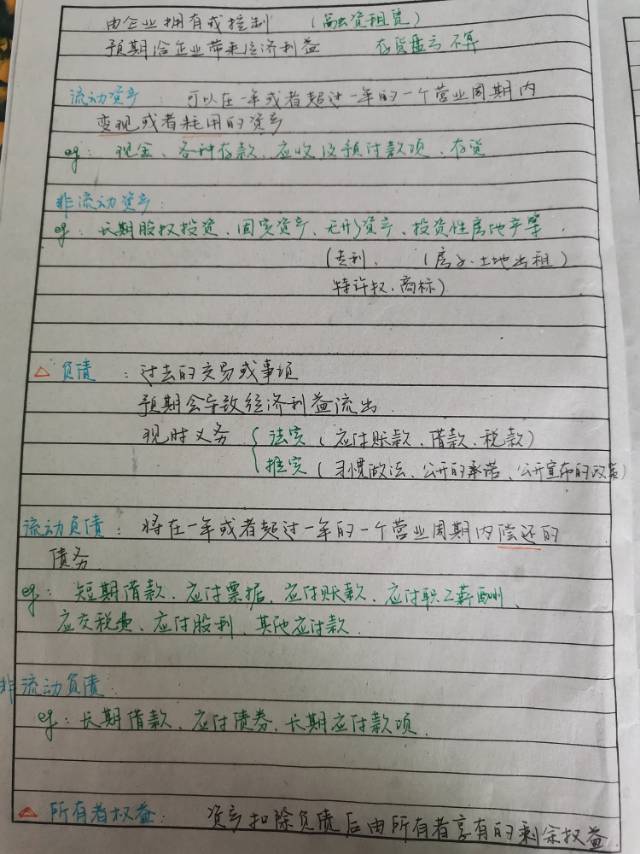 由企业拥有或控制 （融资租赁）
预期给企业带来经济利益 存货盘亏不算
流动资产：可以在一年或者超过一年的一个营业周期内
变现或者耗用的资产
eg：现金、各种存款、应收及预付款项、存货
非流动资产：
eg：长期股权投资、固定资产、无形资产、投资性房地产等.
（专利、 （房子、土地出租）
特许权、商标）
△ 负债：过去的交易或事项
预期会导致经济利益流出
现时义务 { 法定（应付账款、借款、税款）
推定（习惯做法、公开的承诺、公开宣布的政策）
流动负债：将在一年或者超过一年的一个营业周期内偿还的
债务.
eg：短期借款、应付票据、应付账款、应付职工薪酬、
应交税费、应付股利、其他应付款.
非流动负债：
eg：长期借款、应付债券、长期应付款项.
△ 所有者权益：资产扣除负债后由所有者享有的剩余权益